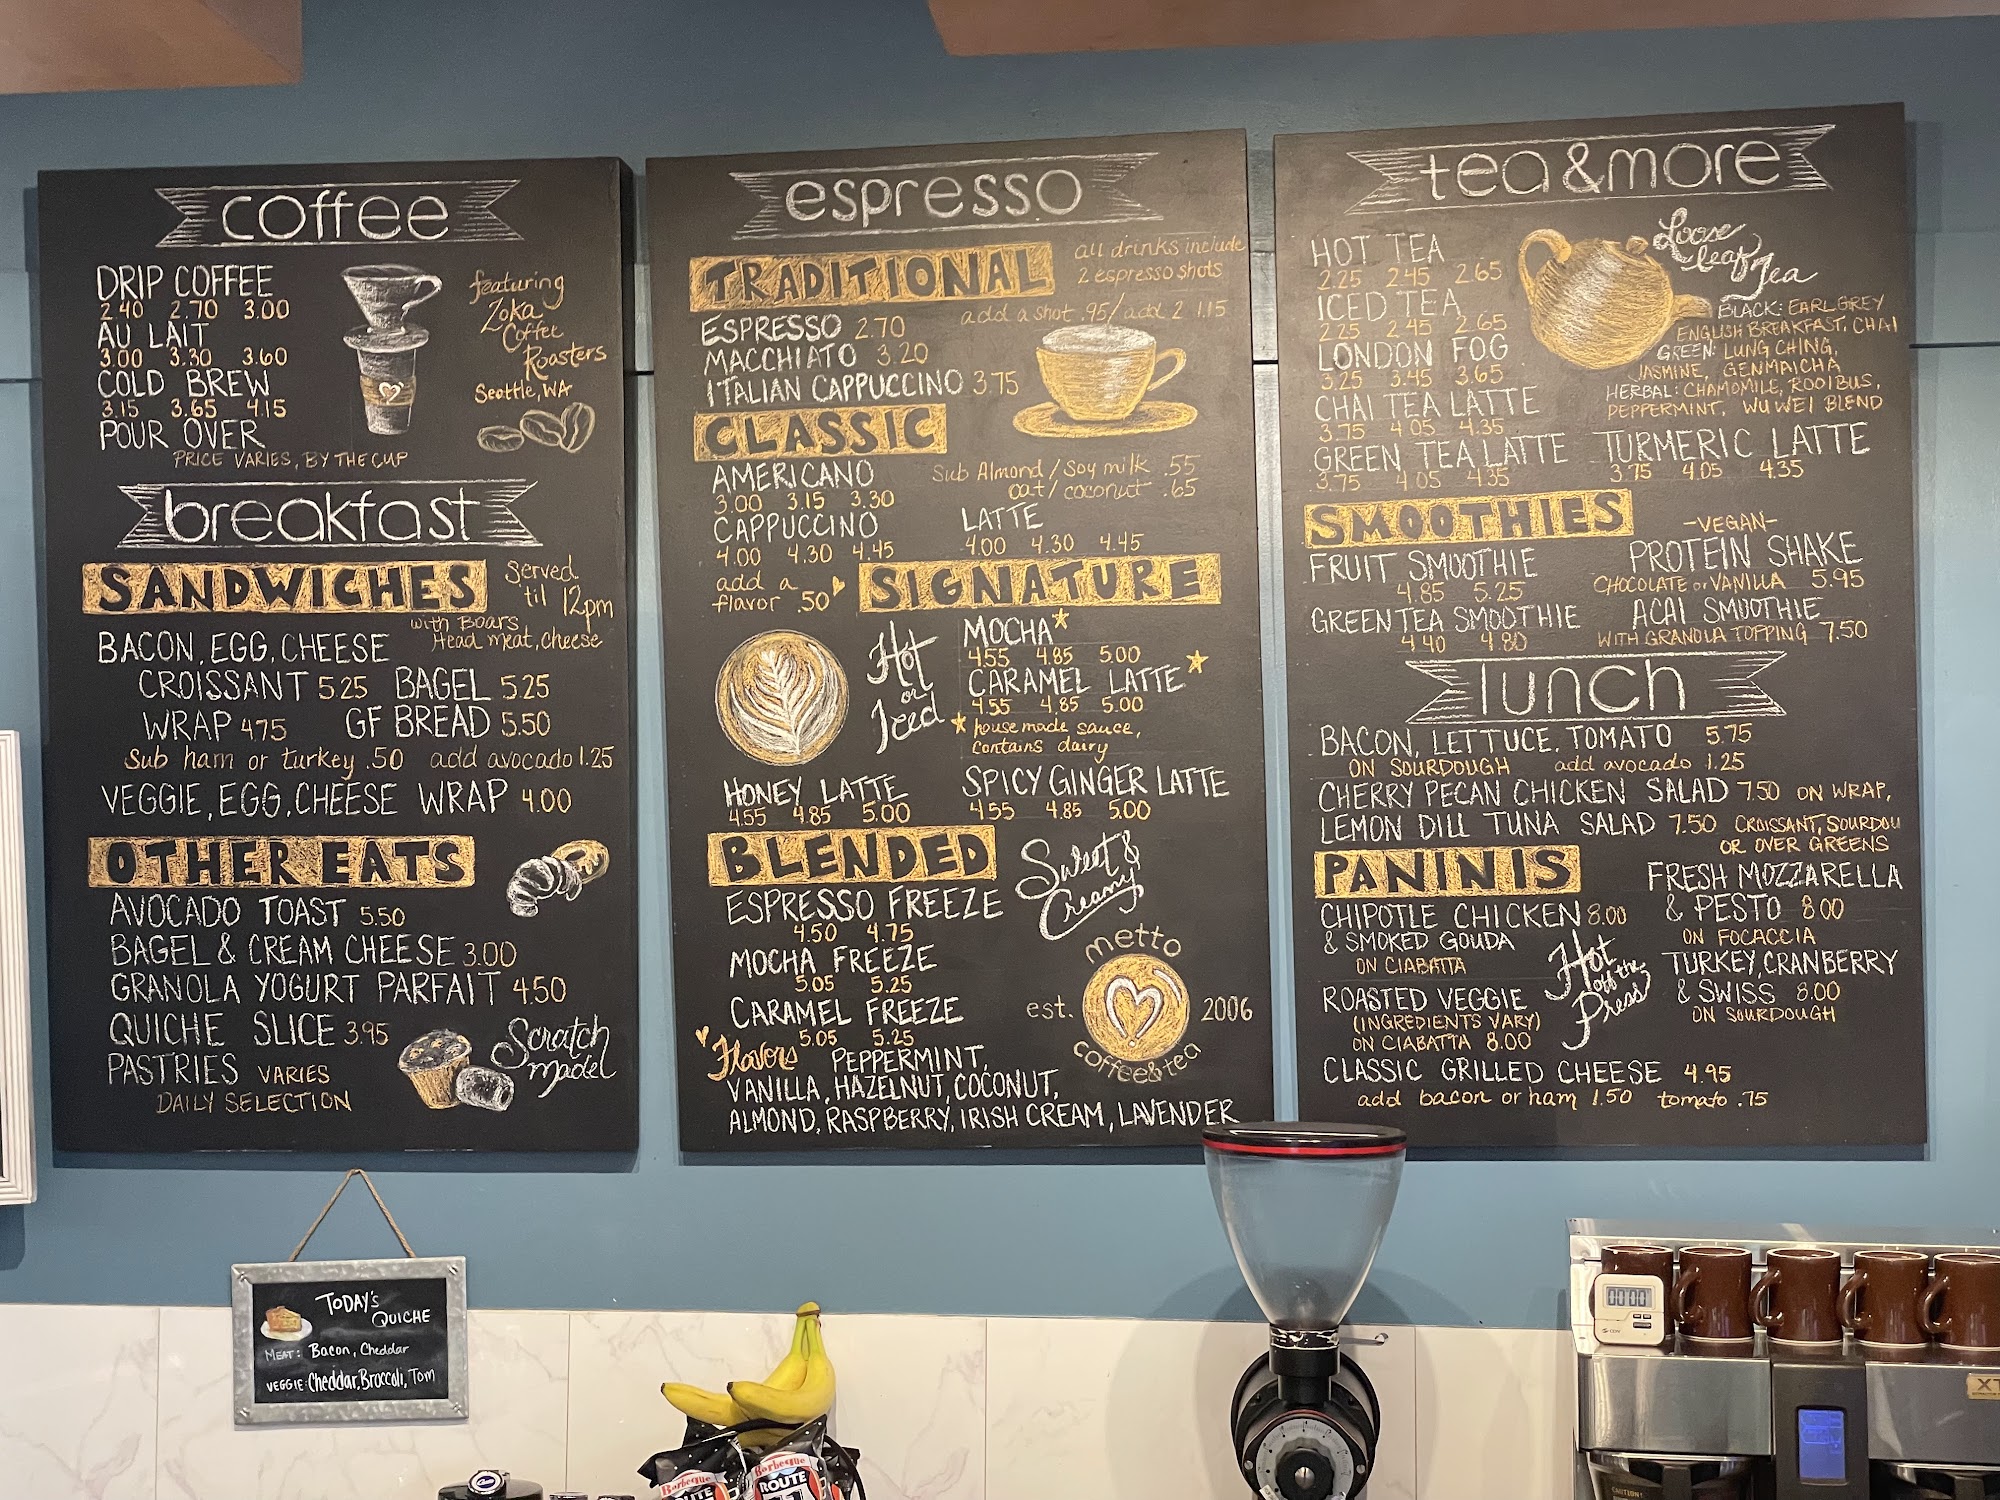 coffee
DRIP COFFEE
2.40 2.70 3.00
AU LAIT
3.00 3.30 3.60
COLD BREW
3.15 3.65 4.15
POUR OVER
PRICE VARIES, BY THE CUP
featuring
Zoka
Coffee
Roasters
Seattle, WA
breakfast
SANDWICHES
served
til 12pm
with Boars
Head meat, cheese
BACON, EGG, CHEESE
CROISSANT 5.25 BAGEL 5.25
WRAP 4.75 GF BREAD 5.50
Sub ham or turkey .50 add avocado 1.25
VEGGIE, EGG, CHEESE WRAP 4.00
OTHER EATS
AVOCADO TOAST 5.50
BAGEL & CREAM CHEESE 3.00
GRANOLA YOGURT PARFAIT 4.50
QUICHE SLICE 3.95
PASTRIES VARIES
DAILY SELECTION
Scratch
made!
espresso
TRADITIONAL
all drinks include
2 espresso shots
add a shot .95/ add 2 1.15
ESPRESSO 2.70
MACCHIATO 3.20
ITALIAN CAPPUCCINO 3.75
CLASSIC
AMERICANO
3.00 3.15 3.30
Sub Almond/Soy milk .55
oat/coconut .65
CAPPUCCINO
4.00 4.30 4.45
LATTE
4.00 4.30 4.45
add a
flavor .50
SIGNATURE
Hot
or
Iced
MOCHA*
4.55 4.85 5.00
CARAMEL LATTE*
4.55 4.85 5.00
* house made sauce,
contains dairy
HONEY LATTE
4.55 4.85 5.00
SPICY GINGER LATTE
4.55 4.85 5.00
BLENDED
Sweet &
Creamy
ESPRESSO FREEZE
4.50 4.75
MOCHA FREEZE
5.05 5.25
CARAMEL FREEZE
5.05 5.25
metto
est. 2006
coffee & tea
Flavors PEPPERMINT,
VANILLA, HAZELNUT, COCONUT,
ALMOND, RASPBERRY, IRISH CREAM, LAVENDER
tea & more
HOT TEA
2.25 2.45 2.65
ICED TEA
2.25 2.45 2.65
LONDON FOG
3.25 3.45 3.65
CHAI TEA LATTE
3.75 4.05 4.35
GREEN TEA LATTE
3.75 4.05 4.35
Loose
leaf
Tea
BLACK: EARL GREY
ENGLISH BREAKFAST, CHAI
GREEN: LUNG CHING,
JASMINE, GENMAICHA
HERBAL: CHAMOMILE, ROOIBUS,
PEPPERMINT, WU WEI BLEND
TURMERIC LATTE
3.75 4.05 4.35
SMOOTHIES
FRUIT SMOOTHIE
4.85 5.25
GREEN TEA SMOOTHIE
4.40 4.80
-VEGAN-
PROTEIN SHAKE
CHOCOLATE or VANILLA 5.95
ACAI SMOOTHIE
WITH GRANOLA TOPPING 7.50
lunch
BACON, LETTUCE, TOMATO 5.75
ON SOURDOUGH add avocado 1.25
CHERRY PECAN CHICKEN SALAD 7.50 ON WRAP,
LEMON DILL TUNA SALAD 7.50 CROISSANT, SOURDOU
OR OVER GREENS
PANINIS
CHIPOTLE CHICKEN 8.00
& SMOKED GOUDA
ON CIABATTA
ROASTED VEGGIE
(INGREDIENTS VARY)
ON CIABATTA 8.00
Hot
off the
Press
FRESH MOZZARELLA
& PESTO 8.00
ON FOCACCIA
TURKEY, CRANBERRY
& SWISS 8.00
ON SOURDOUGH
CLASSIC GRILLED CHEESE 4.95
add bacon or ham 1.50 tomato .75
TODAY'S
QUICHE
MEAT: Bacon, Cheddar
VEGGIE: Cheddar, Broccoli, Tom
Barbeque
ROUTE
Barbeque
ROUTE
11
CDN
CAUTION!